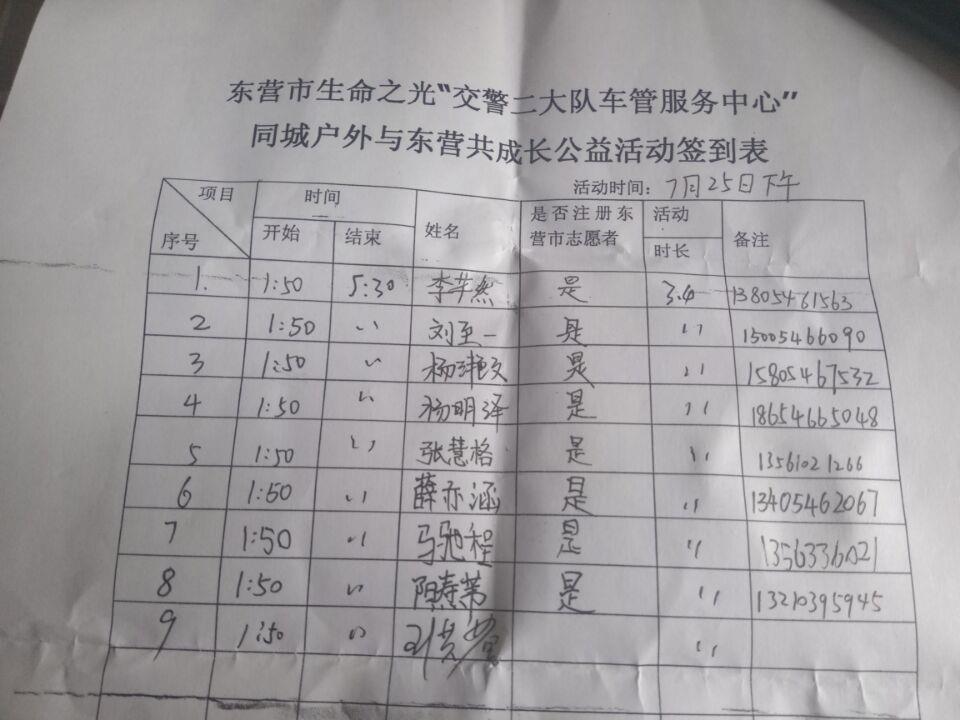 东营市生命之光“交警二大队车管服务中心”
同城户外与东营共成长公益活动签到表
活动时间：7月25日下午
项目 序号 时间 开始 结束 姓名 是否注册东营市志愿者 活动时长 备注
1. 1:50 5:30 李 是 3.4 13805461563
2 1:50 〃 刘至一 是 〃 15005466090
3 1:50 〃 杨 是 〃 15805467532
4 1:50 〃 杨明泽 是 〃 18654665048
5 1:50 〃 张慧格 是 〃 13561021266
6 1:50 〃 薛亦涵 是 〃 13405462067
7 1:50 〃 马驰程 是 〃 13563336021
8 1:50 〃 是 〃 13210395945
9 1:50 〃 〃